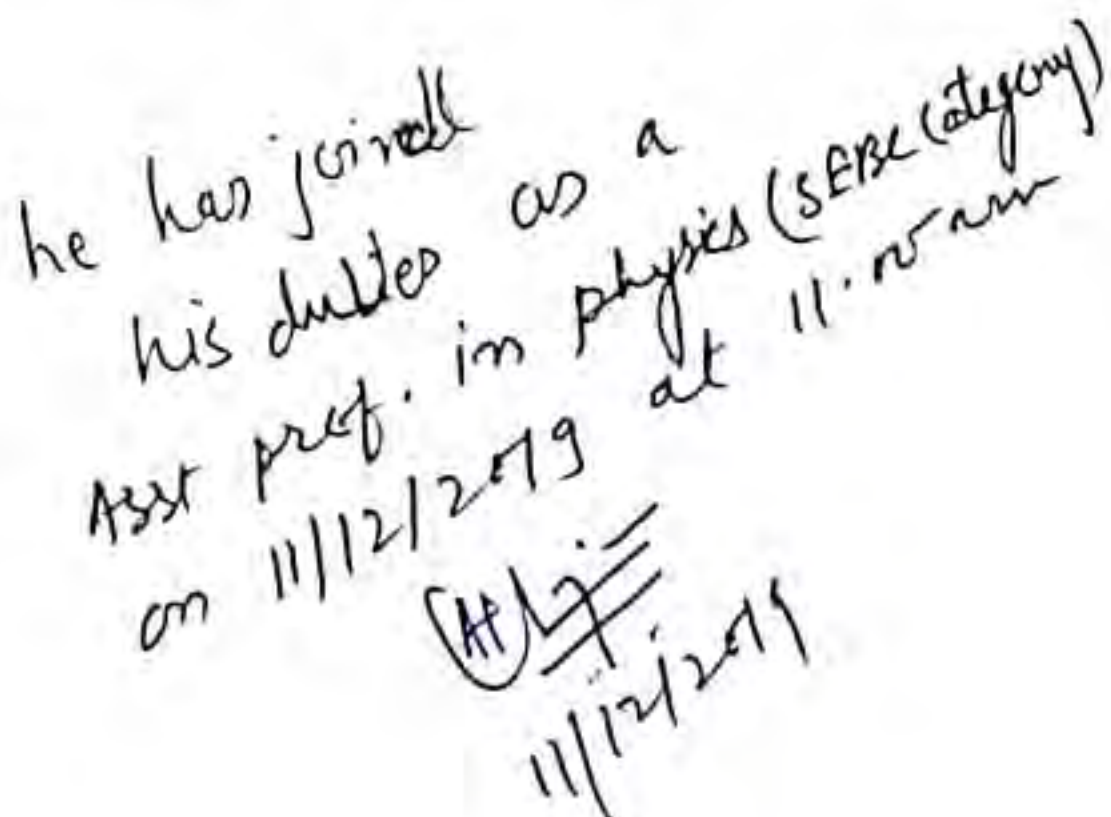 he has joined
his duties as a
Asst prof. in physics (SEBC Category)
on 11/12/2019 at 11. am
11/12/2019